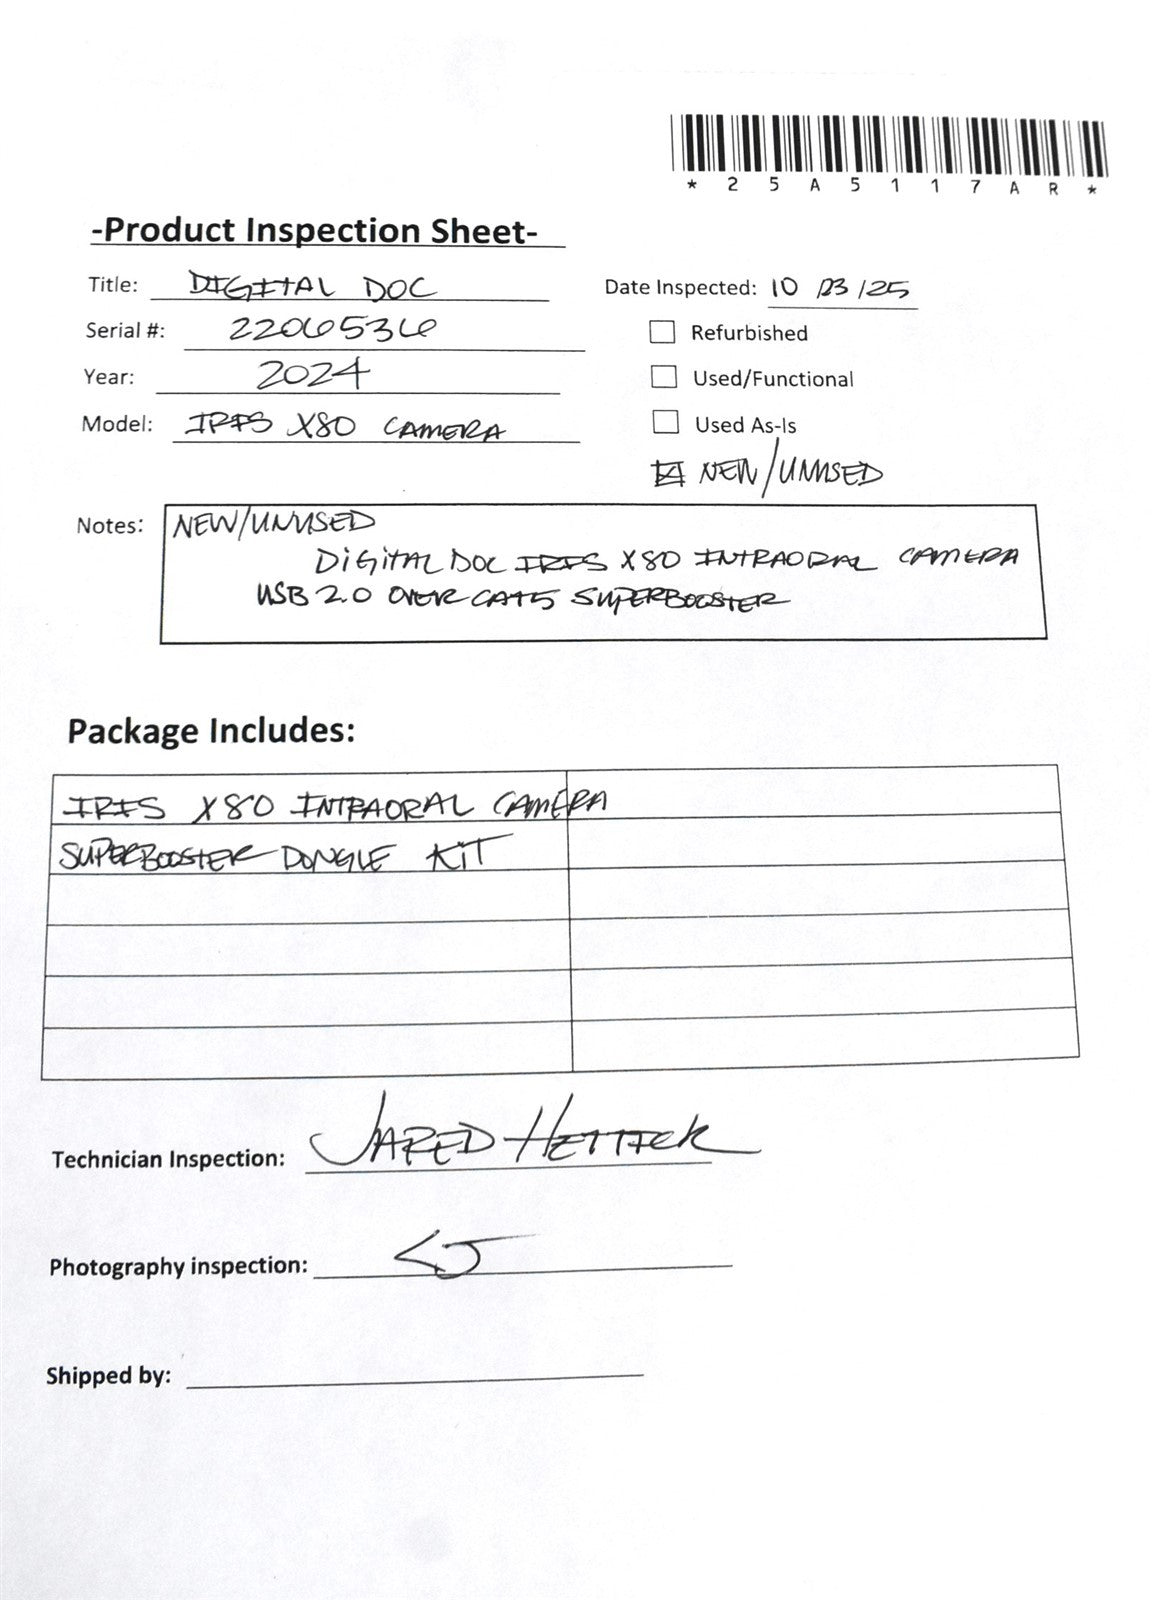 *25A5117AR*
-Product Inspection Sheet-
Title: DIGITAL DOC
Date Inspected: 10/23/25
Serial #: 2206536
Refurbished
Year: 2024
Used/Functional
Model: IRIS X80 CAMERA
Used As-Is
NEW/UNUSED
Notes: NEW/UNUSED
DIGITAL DOC IRIS X80 INTRAORAL CAMERA
USB 2.0 OVER CAT5 SUPERBOOSTER
Package Includes:
IRIS X80 INTRAORAL CAMERA
SUPERBOOSTER DONGLE KIT
Technician Inspection: JARED HETTICK
Photography inspection:
Shipped by: